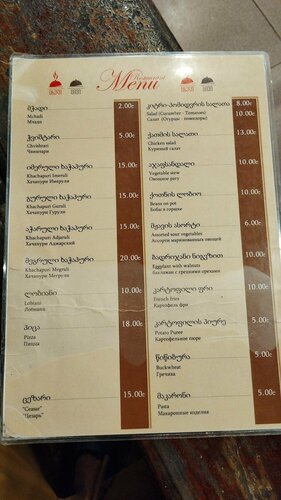 Restaurant
Menu
მჭადი
Mchadi
Мчади
2.00¢
ჭვიშტარი
Chvishtari
Чвиштари
5.00¢
იმერული ხაჭაპური
Khachapuri Imeruli
Хачапури Имерули
15.00¢
გურული ხაჭაპური
Khachapuri Guruli
Хачапури Гурули
15.00¢
აჭარული ხაჭაპური
Khachapuri Adjaruli
Хачапури Аджарский
15.00¢
მეგრული ხაჭაპური
Khachapuri Megruli
Хачапури Мегрули
20.00¢
ლობიანი
Lobiani
Лобиани
10.00¢
პიცა
Pizza
Пицца
18.00¢
ცეზარი
"Cesar"
"Цезарь"
15.00¢
კიტრი-პომიდვრის სალათა
Salad (Cucumber - Tomatoes)
Салат (Огурцы - помидоры)
8.00¢
10.00¢
ქათმის სალათი
Chicken salad
Куриный салат
13.00¢
აჯაფსანდალი
Vegetable stew
Овощное рагу
10.00¢
ქოთნის ლობიო
Beans on pot
Бобы в горшке
10.00¢
მჟავის ასორტი
Assorted sour vegetables
Ассорти маринованных овощей
6.00¢
ბადრიჯანი ნიგვზით
Eggplant with walnuts
баклажан с грецкими орехами
10.00¢
კარტოფილი ფრი
French fries
Картофель фри
10.00¢
კარტოფილის პიურე
Potato Puree
Картофельное пюре
5.00¢
წიწიბურა
Buckwheat
Гречиха
5.00¢
მაკარონი
Pasta
Макаронные изделия
5.00¢